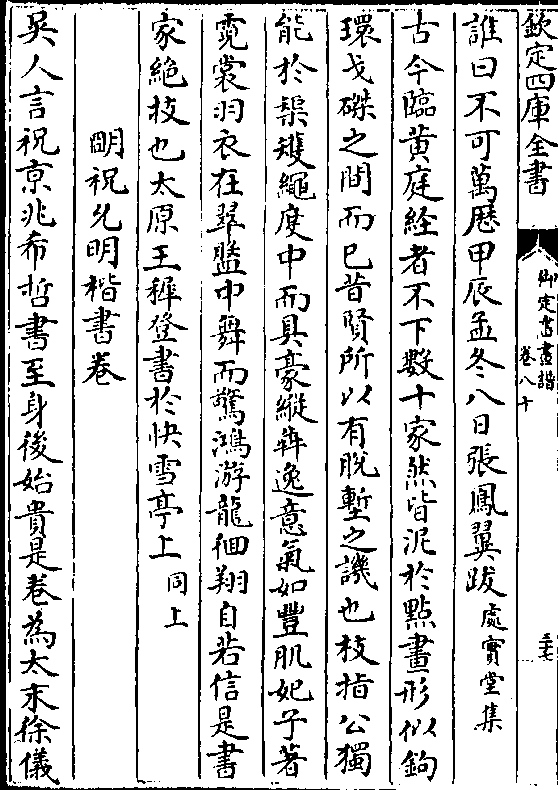 欽定四庫全書
御定書畫譜
卷八十
三七
誰曰不可萬歷甲辰孟冬八日張鳳翼跋處實堂集
古今臨黄庭經者不下數十家然皆泥於點畫形似鉤
環戈磔之間而已昔賢所以有脱塹之譏也枝指公獨
能於榘矱繩度中而具豪縱犇逸意氣如豐肌妃子著
霓裳羽衣在翠盤中舞而驚鴻游龍徊翔自若信是書
家絶技也太原王穉登書於快雪亭上同上
明祝允明楷書卷
吳人言祝京兆希哲書至身後始貴是卷為太末徐儀